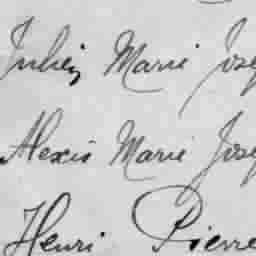 Julien Marie Jose
Alexis Marie Jose
Henri Pierre